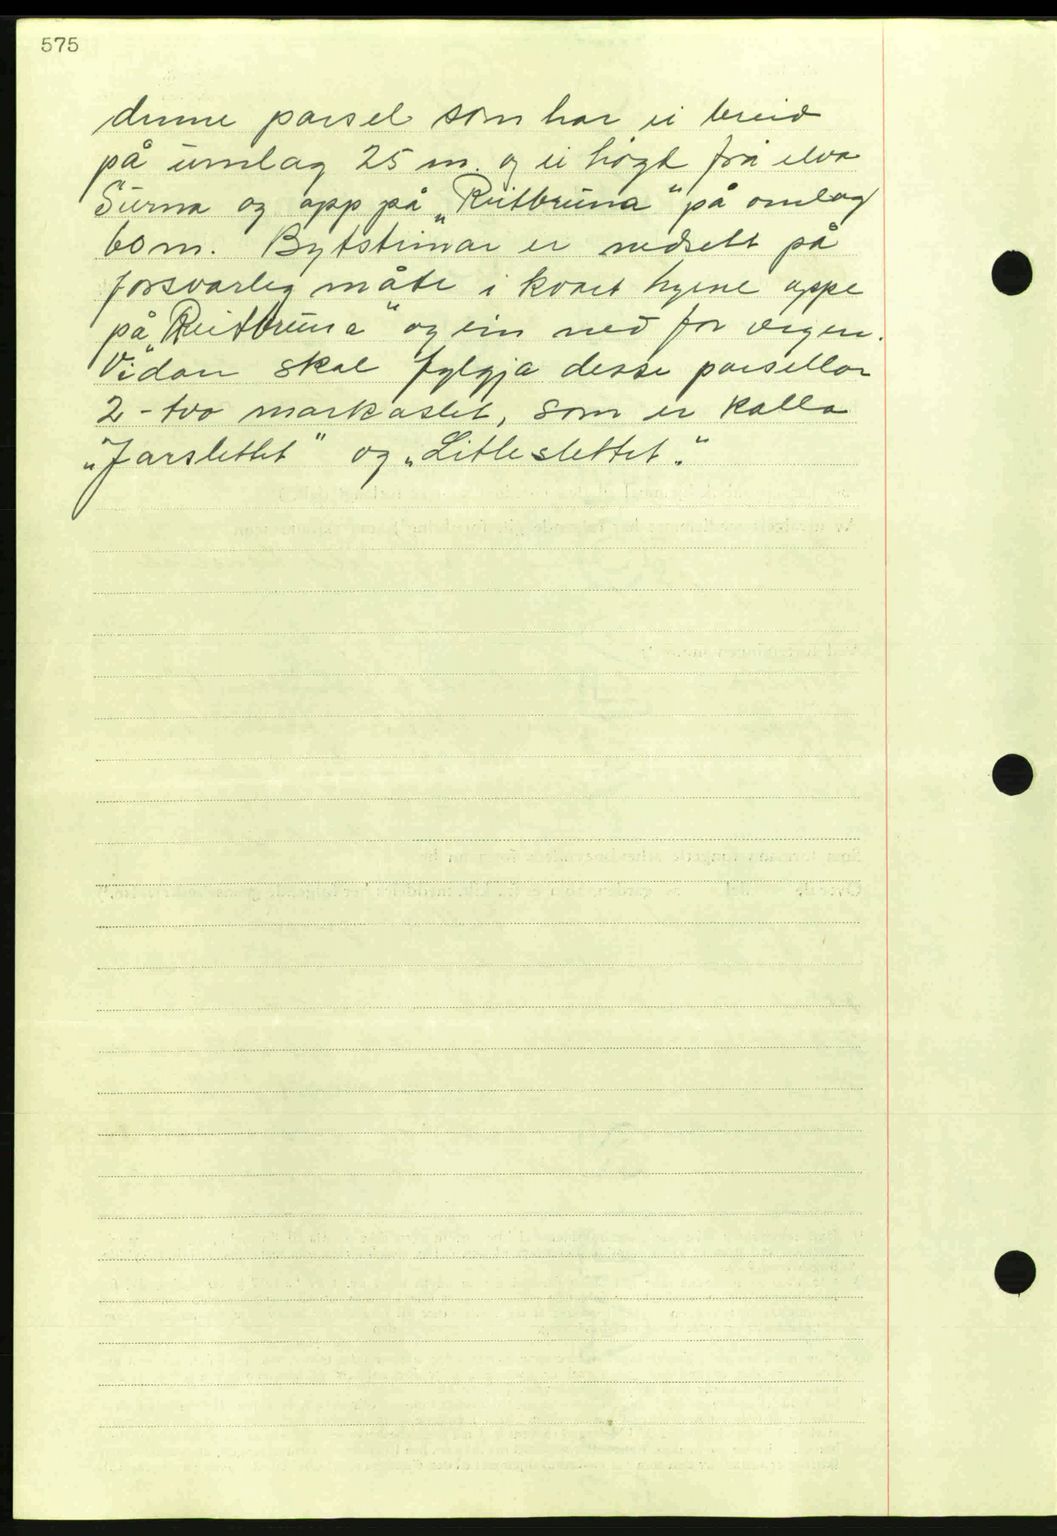 575
denne parsel som har ei breid
på umlag 25 m. og ei høgd frå elva
Surna og opp på „Reitbruna" på omlag
60 m. Bytsteinar er nedsett på
forsvarleg måte i kvart hyrne oppe
på „Reitbruna" og ein ned for vegen.
Vidare skal fylgja desse parsellar
2 - tvo markaslet, som er kalla
„Jarslettet" og „Litleslettet".